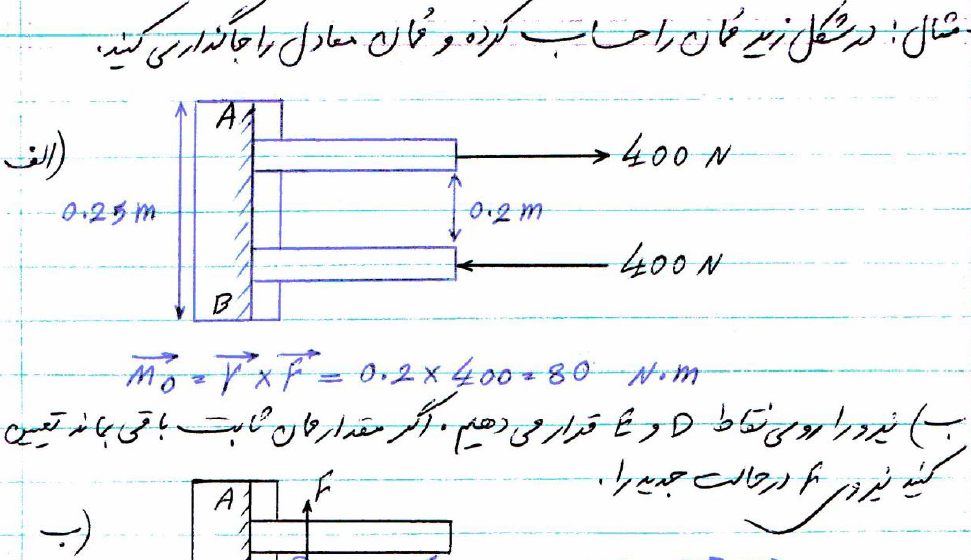 مثال: در شکل زیر ممان را حساب کرده و ممان معادل را جاگذاری کنید.
الف)
A
400 N
0.25 m
0.2 m
400 N
B
M₀ = r × F = 0.2 × 400 = 80 N.m
ب) نیرو را روی نقاط D و E قرار می دهیم. اگر مقدار ممان ثابت باقی بماند تعیین
کنید نیروی F در حالت جدید را.
ب)
A
F